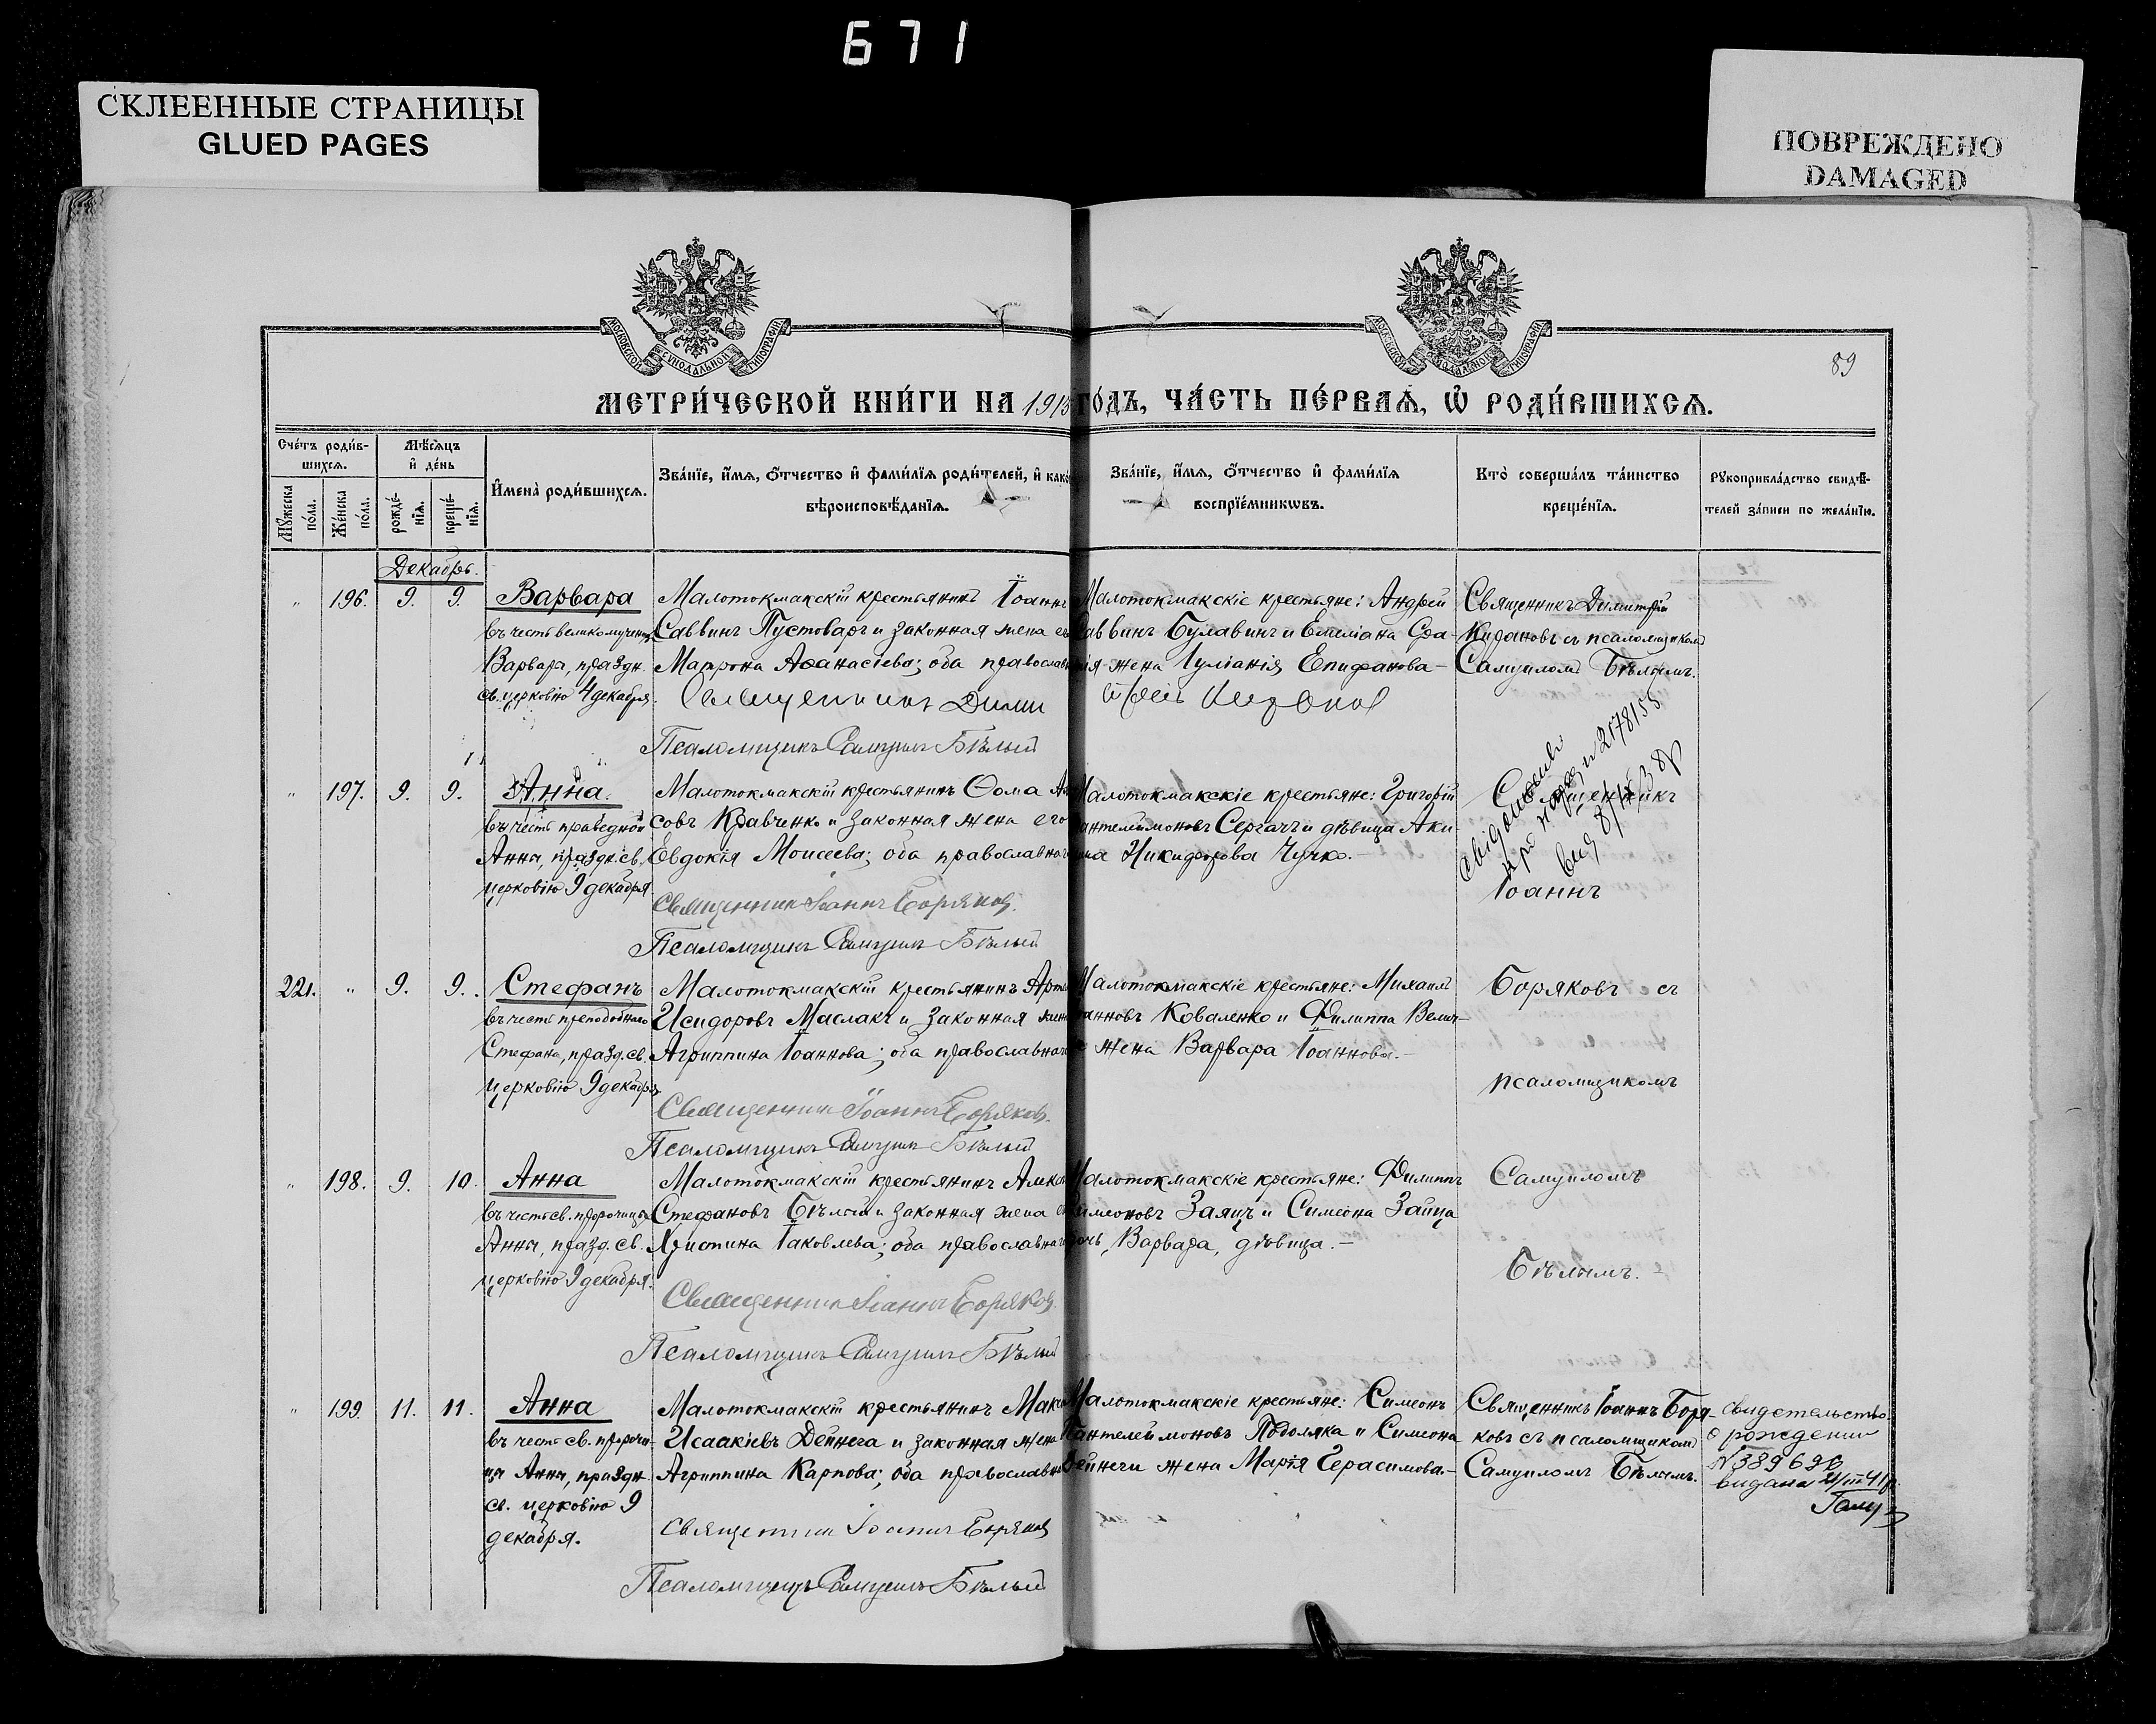 671
СКЛЕЕННЫЕ СТРАНИЦЫ
GLUED PAGES
ПОВРЕЖДЕНО
DAMAGED
МОСКОВСКОЙ СѴНОДАЛЬНОЙ ТИПОГРАФІИ
МОСКОВСКОЙ СѴНОДАЛЬНОЙ ТИПОГРАФІИ
89
МЕТРИ́ЧЕСКОЙ КНИ́ГИ НА 1915 ГО́ДЪ, ЧА́СТЬ ПЕ́РВАѦ, Ѡ҆ РОДИ́ВШИХСѦ.
Сче́тъ роди́в-
шихсѧ.
Мѹ́жеска по́ла.
Же́нска по́ла.
Мѣ́сѧцъ
и҆ де́нь
рожде́-
нїѧ.
креще́-
нїѧ.
И҆мена̀ роди́вшихсѧ.
Зва́нїе, и҆́мѧ, ѻ҆́тчество и҆ фами́лїѧ роди́телей, и҆ како
вѣроисповѣ́данїѧ.
Зва́нїе, и҆́мѧ, ѻ҆́тчество и҆ фами́лїѧ
воспрїе́мникѡвъ.
Кто̀ соверша́лъ та́инство
креще́нїѧ.
Рꙋкоприкла́дство свидѣ́-
телей за́писи по жела́нїю.
Декабрь.
" 196. 9. 9. Варвара
въ честь великомучениц.
Варвары, праздн.
св. церковію 4 декабря.
Малотокмакскій крестьянинъ Іоаннъ
Саввинъ Пустоваръ и законная жена его
Матрона Аѳанасіева; оба православн
Священникъ Дими
Псаломщикъ Самуилъ Бѣлый
Малотокмакскіе крестьяне: Андрей
Саввинъ Булавинъ и Емеліана
жена Іуліанія Епифанова
трій Кирановъ
Священникъ Димитрій
Кирановъ съ псаломщикомъ
Самуиломъ Бѣлымъ.
" 197. 9. 9. Анна.
въ честь праведной
Анны, праздн. св.
церковію 9 декабря
Малотокмакскій крестьянинъ Ѳома
совъ Кравченко и законная жена его
Евдокія Моисеева; оба православнаго
Священникъ Іоаннъ Боряковъ.
Псаломщикъ Самуилъ Бѣлый
Малотокмакскіе крестьяне: Григорій
Пантелеймоновъ Сергачъ и дѣвица Аки-
лина Никифорова Чучко.
Священникъ
Іоаннъ
2178155
221. " 9. 9. Стефанъ
въ честь преподобнаго
Стефана, празд. св.
церковію 9 декабря
Малотокмакскій крестьянинъ Арте
Исидоровъ Маслакъ и законная жена
Агриппина Іоаннова; оба православнаго
Священникъ Іоаннъ Боряковъ.
Псаломщикъ Самуилъ Бѣлый
Малотокмакскіе крестьяне: Михаилъ
Іоанновъ Коваленко и Филиппа
жена Варвара Іоаннова.
Боряковъ съ
псаломщикомъ
" 198. 9. 10. Анна
въ честь св. пророчицы
Анны, празд. св.
церковію 9 декабря.
Малотокмакскій крестьянинъ Алекс
Стефановъ Бѣлый и законная жена
Христина Іаковлева; оба православнаго
Священникъ Іоаннъ Боряковъ.
Псаломщикъ Самуилъ Бѣлый
Малотокмакскіе крестьяне: Филиппъ
Симеоновъ Заяцъ и Симеона Зайца
дочь, Варвара, дѣвица.
Самуиломъ
Бѣлымъ.
" 199. 11. 11. Анна
въ честь св. пророчи-
цы Анны, праздн.
св. церковію 9
декабря.
Малотокмакскій крестьянинъ Мак
Исаакіевъ Дейнега и законная жена
Агриппина Карпова; оба православн
Священникъ Іоаннъ Боряковъ
Псаломщикъ Самуилъ Бѣлый
Малотокмакскіе крестьяне: Симеонъ
Пантелеймоновъ Подоляка и Симеона
Дейнеги жена Марія Герасимова.
Священникъ Іоаннъ Боря-
ковъ съ псаломщикомъ
Самуиломъ Бѣлымъ.
свидетельство
о рождении